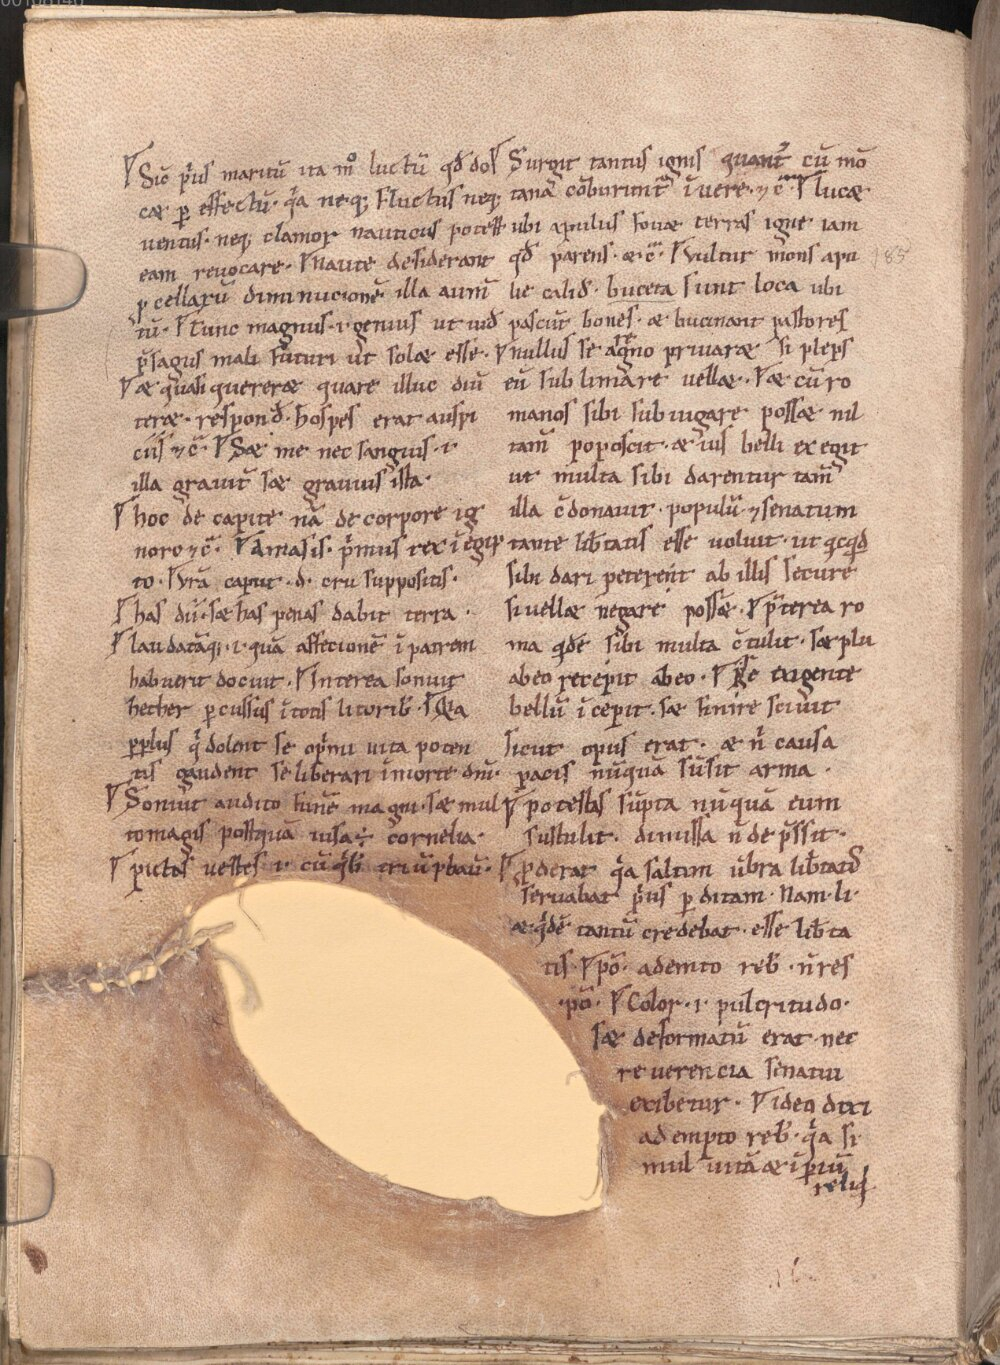 Sic p̄us maritū ita m̊ luctū qd̄ do
cæ ꝑ effectū· q̄a neq; Fluctus neq;
ventus· neq; clamor nauticus potest
eam revocare· naute desiderant
ꝓcellarū diminucionē illa aum̄
tū· Tunc magnus· i· genius ut uid̄
p̄sagus mali futuri ut solæ esse·
æ quasi quereræ quare illuc diu
teræ· respond̄· hospes erat auspi
ciis ⁊c̄· Sæ me nec sanguis· i·
illa grauit̄ sæ grauius ista·
hoc de capite nā de corpore ig
noro ⁊c̄· Amasis· p̄mus rex ī egip
to· Vrā caput· d· cru suppositis·
has dū· sæ has penas dabit terra·
laudatāq;· i· quā affectionē ī patrem
habuerit docuit· Interea sonuit
hether ꝑcussus ītotis litorib;· Qia
pplus q̄ dolent se op̄mi uita poten
tis gaudent se liberari īmorte dn̄i·
Soniut audito funē magni· sæ mul
to magis postquā uisa ÷ cornelia·
pictas uestes· i· cū qb; triūphau̅·
Surgit tantus ignis quant̄ cū mō
tana cōburunt̄ īuere· ⁊c̄· lucæ
ubi apulius fouæ terras igne iam
qd̄ parens· æ c̄· Vultur mons apu
lie calid̄· buceta sunt loca ubi
pascūt boues· æ bucinant pastores
nullus se a regno priuaræ si plebs
eū sublimare uellæ· æ cū ro
manos sibi subiugare possæ nil
tam̄ poposcit· æ ius belli exegit
ut multa sibi darentur tam̄
illa c̄donauit· populū ⁊ senatum
tante lib̄tatis esse uoluit· ut qcqd̄
sibi dari peterent ab illis secure
si uellæ negare possæ· p̄terea ro
ma qdē sibi multa c̄tulit· sæ plu
abeo recepit abeo· Re exigente
bellū īcepit· sæ finire sciuit
sicut opus erat· æ n̄ causa
pacis nūquā sūsit arma·
potestas sūpta nūquā eum
sustulit· dimissa n̄ dep̄ssit·
ꝓderat q̄a saltim ūbra lib̄tatis
seruabat p̄us ꝑditam· Nam· li·
æ qdē tantū credebat· esse lib̄ta
tis· pō· adempto reb;· n̄ res
pō· Color· i· pulcritudo·
sæ deformatū erat nec
reuerencia senatui
exibetur· ideo dixi
adempto reb;· q̄a si
mul uitā æ īperiū
reliq
185